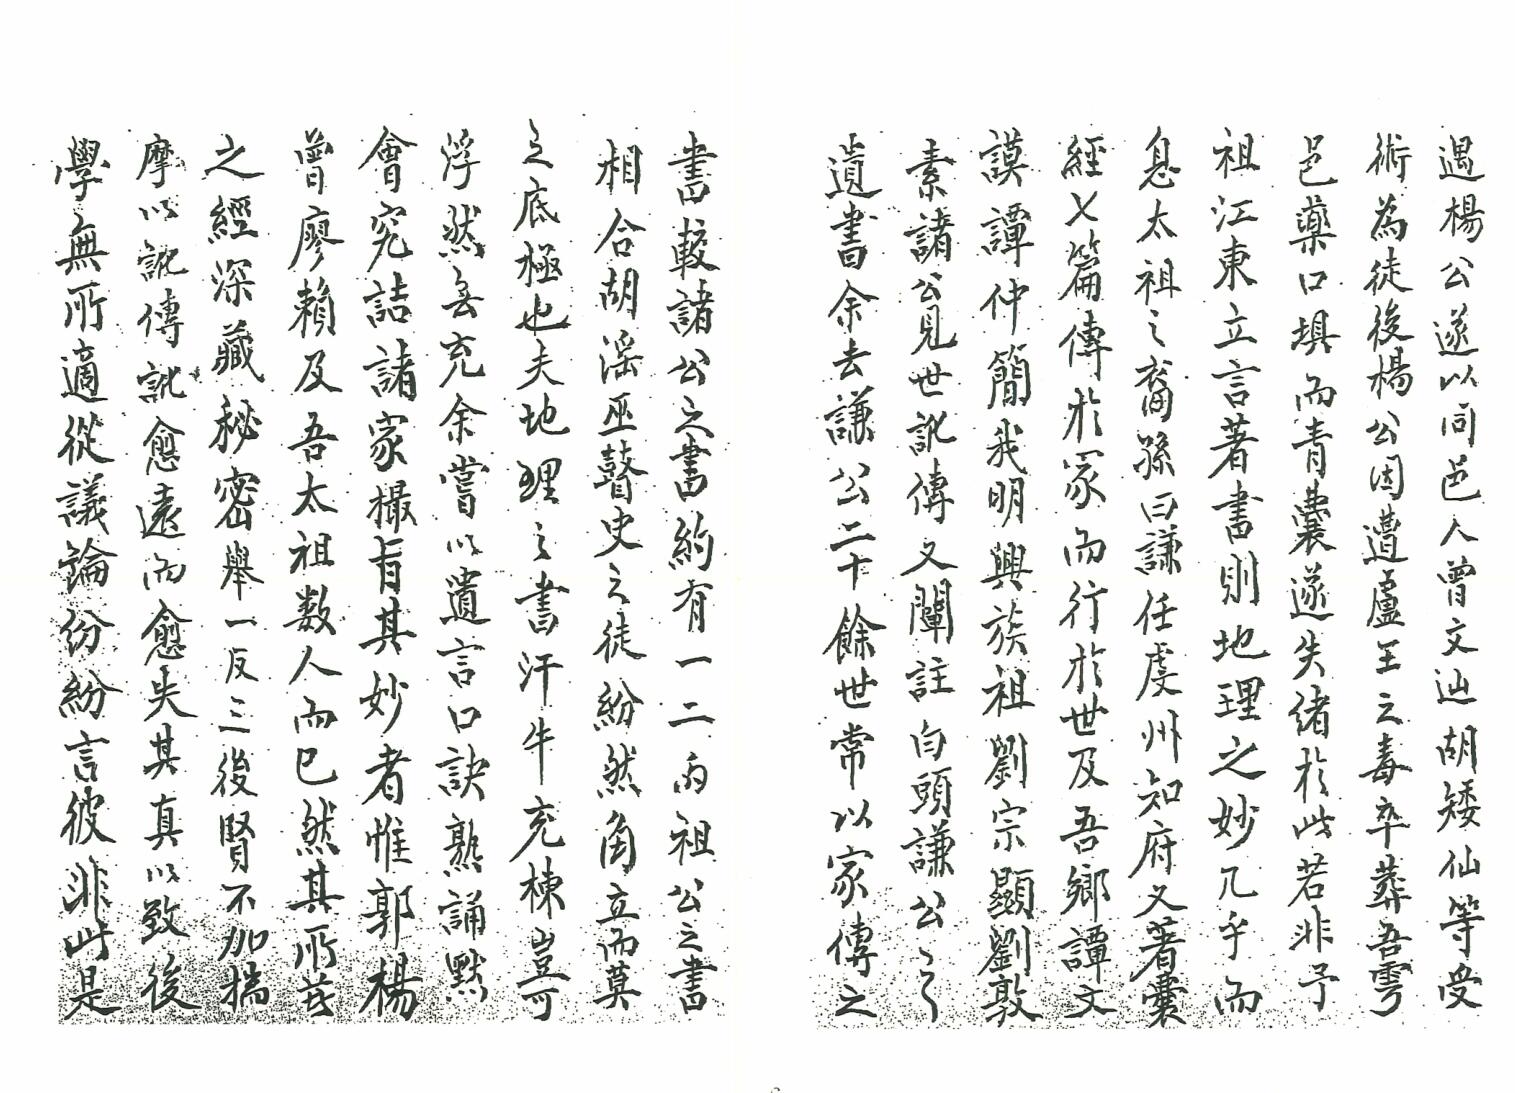 遇楊公遂以同邑人曾文辿胡矮仙等受
術為徒後楊公因遭盧王之毒卒葬吾雩
邑藥口埧而青囊遂失緒於此若非予
祖江東立言著書則地理之妙几乎而
息太祖之裔孫曰謙任虔州知府又著囊
經七篇傳於家而行於世及吾鄉譚文
謨譚仲簡我明興族祖劉宗顯劉敦
素諸公見世訛傳又闡註白頭謙公之
遺書余去謙公二十餘世常以家傳之
書較諸公之書約有一二而祖公之書
相合胡滛巫瞽史之徒紛然角立而莫
之底極也夫地理之書汗牛充棟豈可
浮然無充余嘗以遺言口訣熟誦默
會究詰諸家撮旨其妙者惟郭楊
曾廖賴及吾太祖数人而已然其所著
之經深藏秘密舉一反三後賢不加揣
摩以訛傳訛愈遠而愈失其真以致後
學無所適從議論份紛言彼非此是